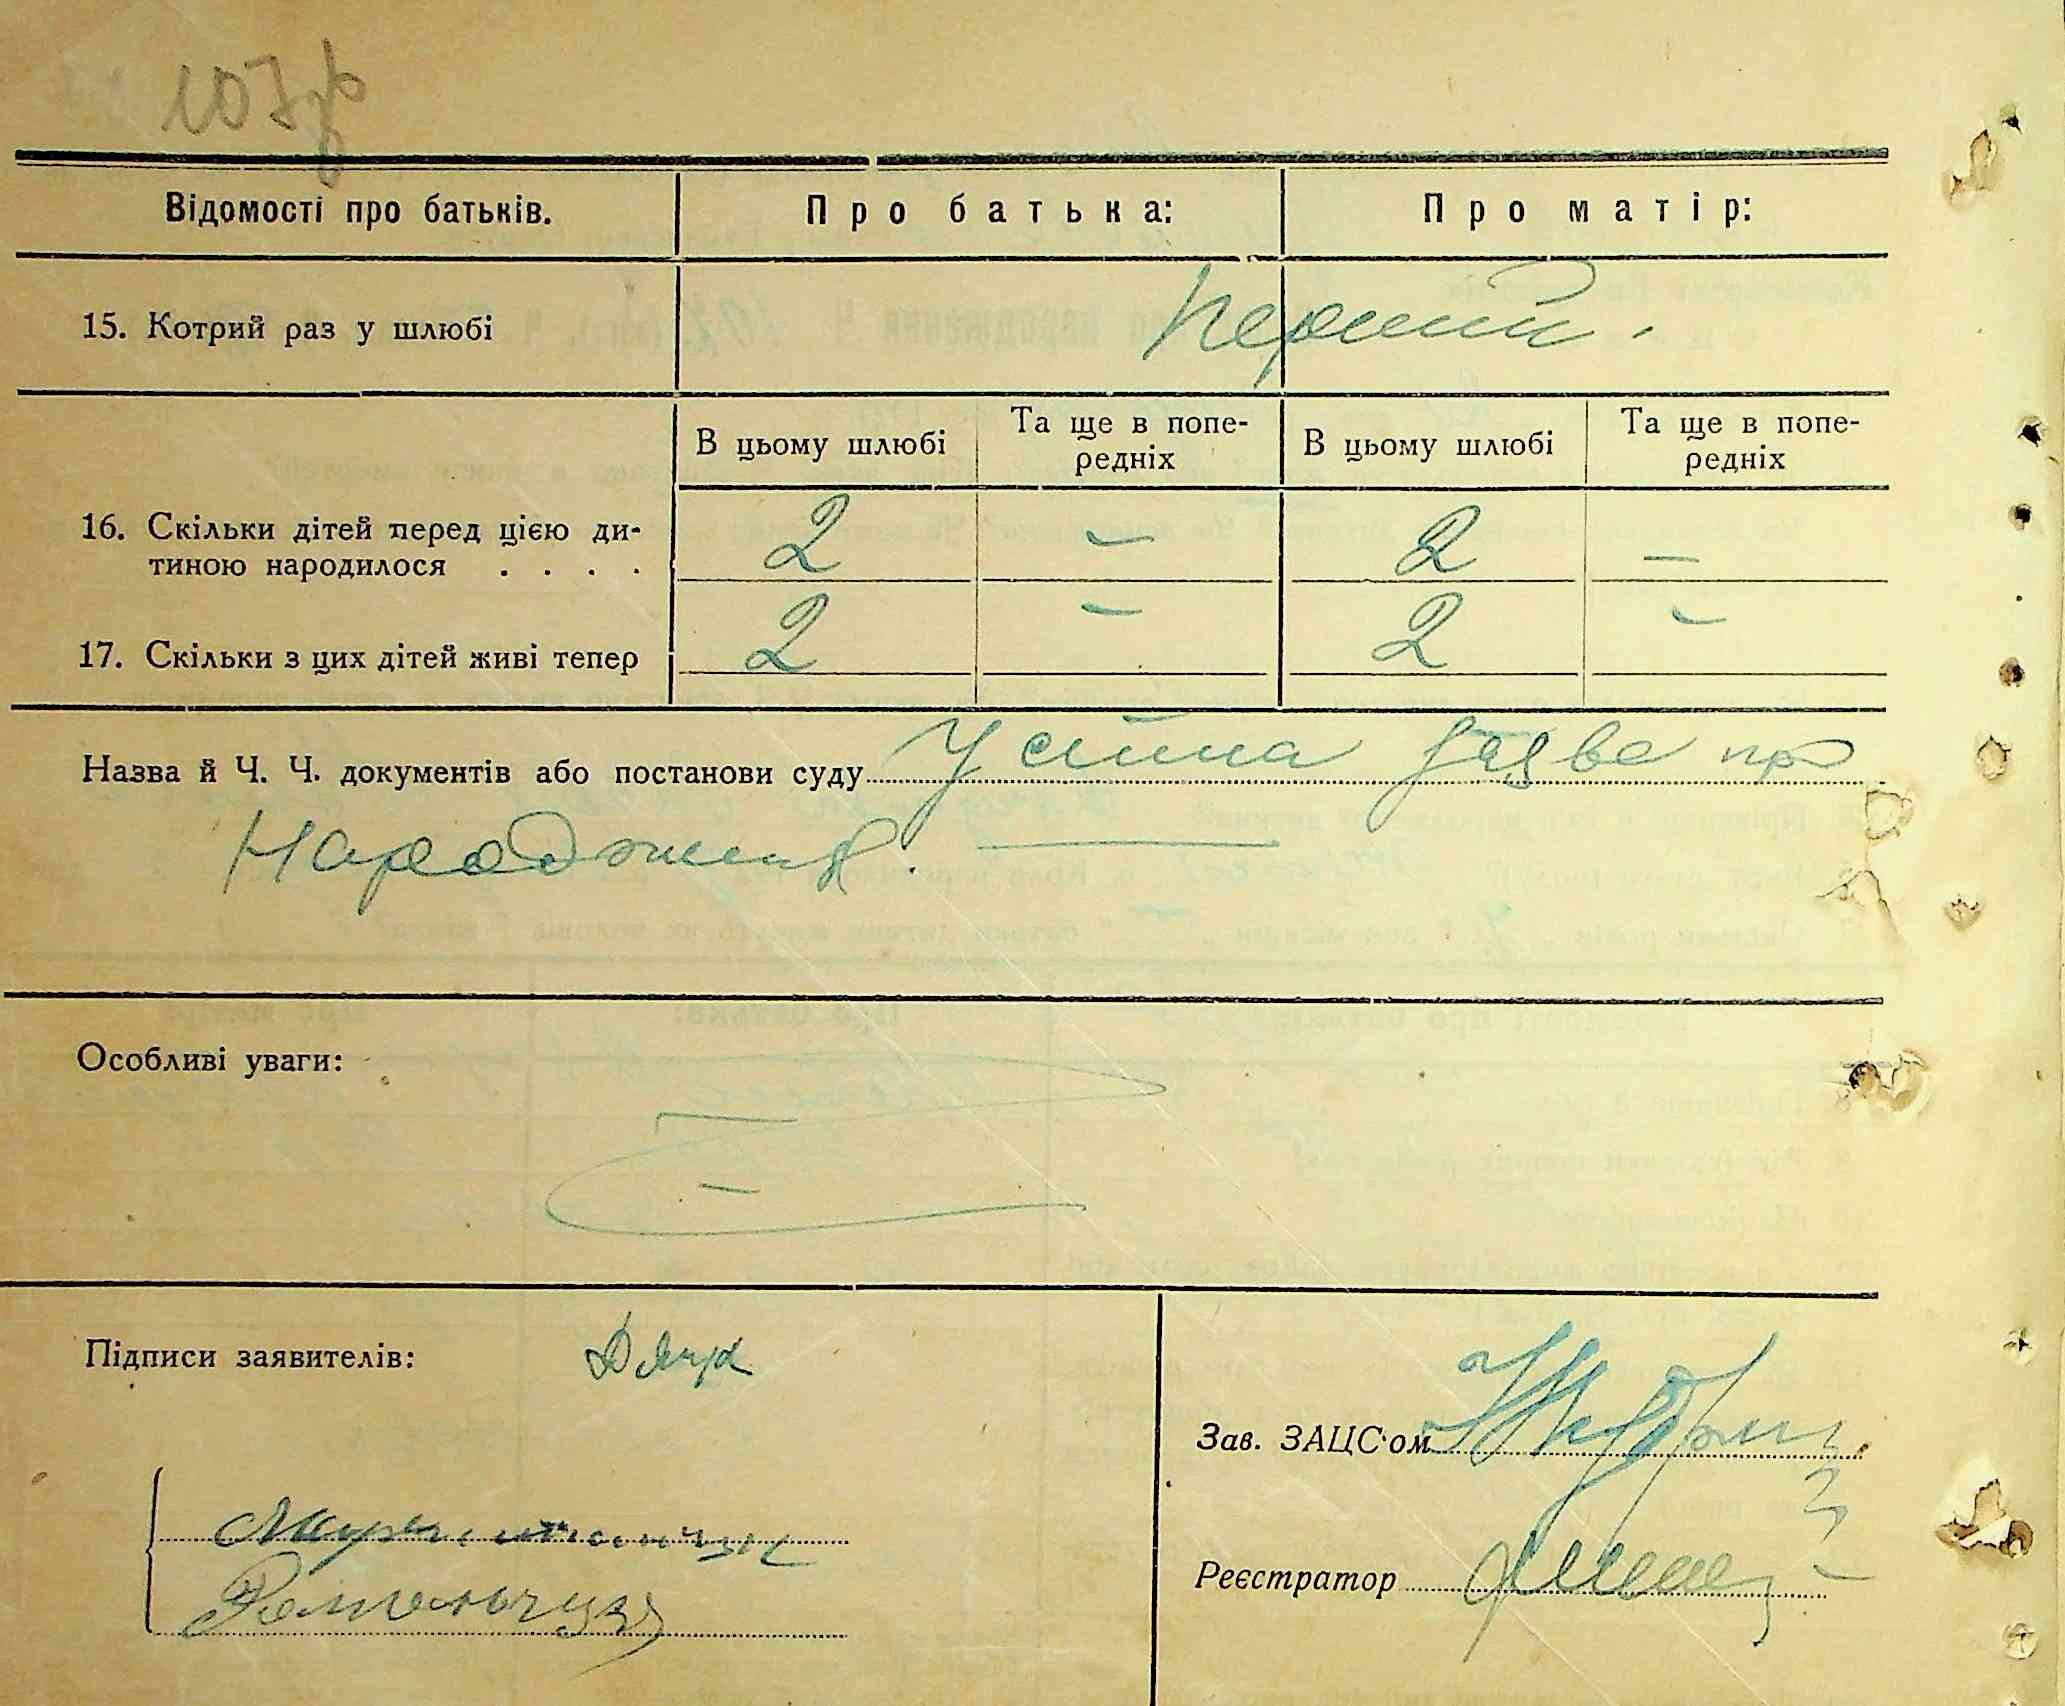 107зр
Відомості про батьків. Про батька: Про матір:
15. Котрий раз у шлюбі Перший.
В цьому шлюбі Та ще в попередніх В цьому шлюбі Та ще в попередніх
16. Скільки дітей перед цією ди-
тиною народилося . . . . 2 – 2 –
17. Скільки з цих дітей живі тепер 2 – 2 –
Назва й Ч. Ч. документів або постанови суду Устна заява про
Народження.
Особливі уваги:
Підписи заявителів:
Зав. ЗАЦС'ом
Реєстратор